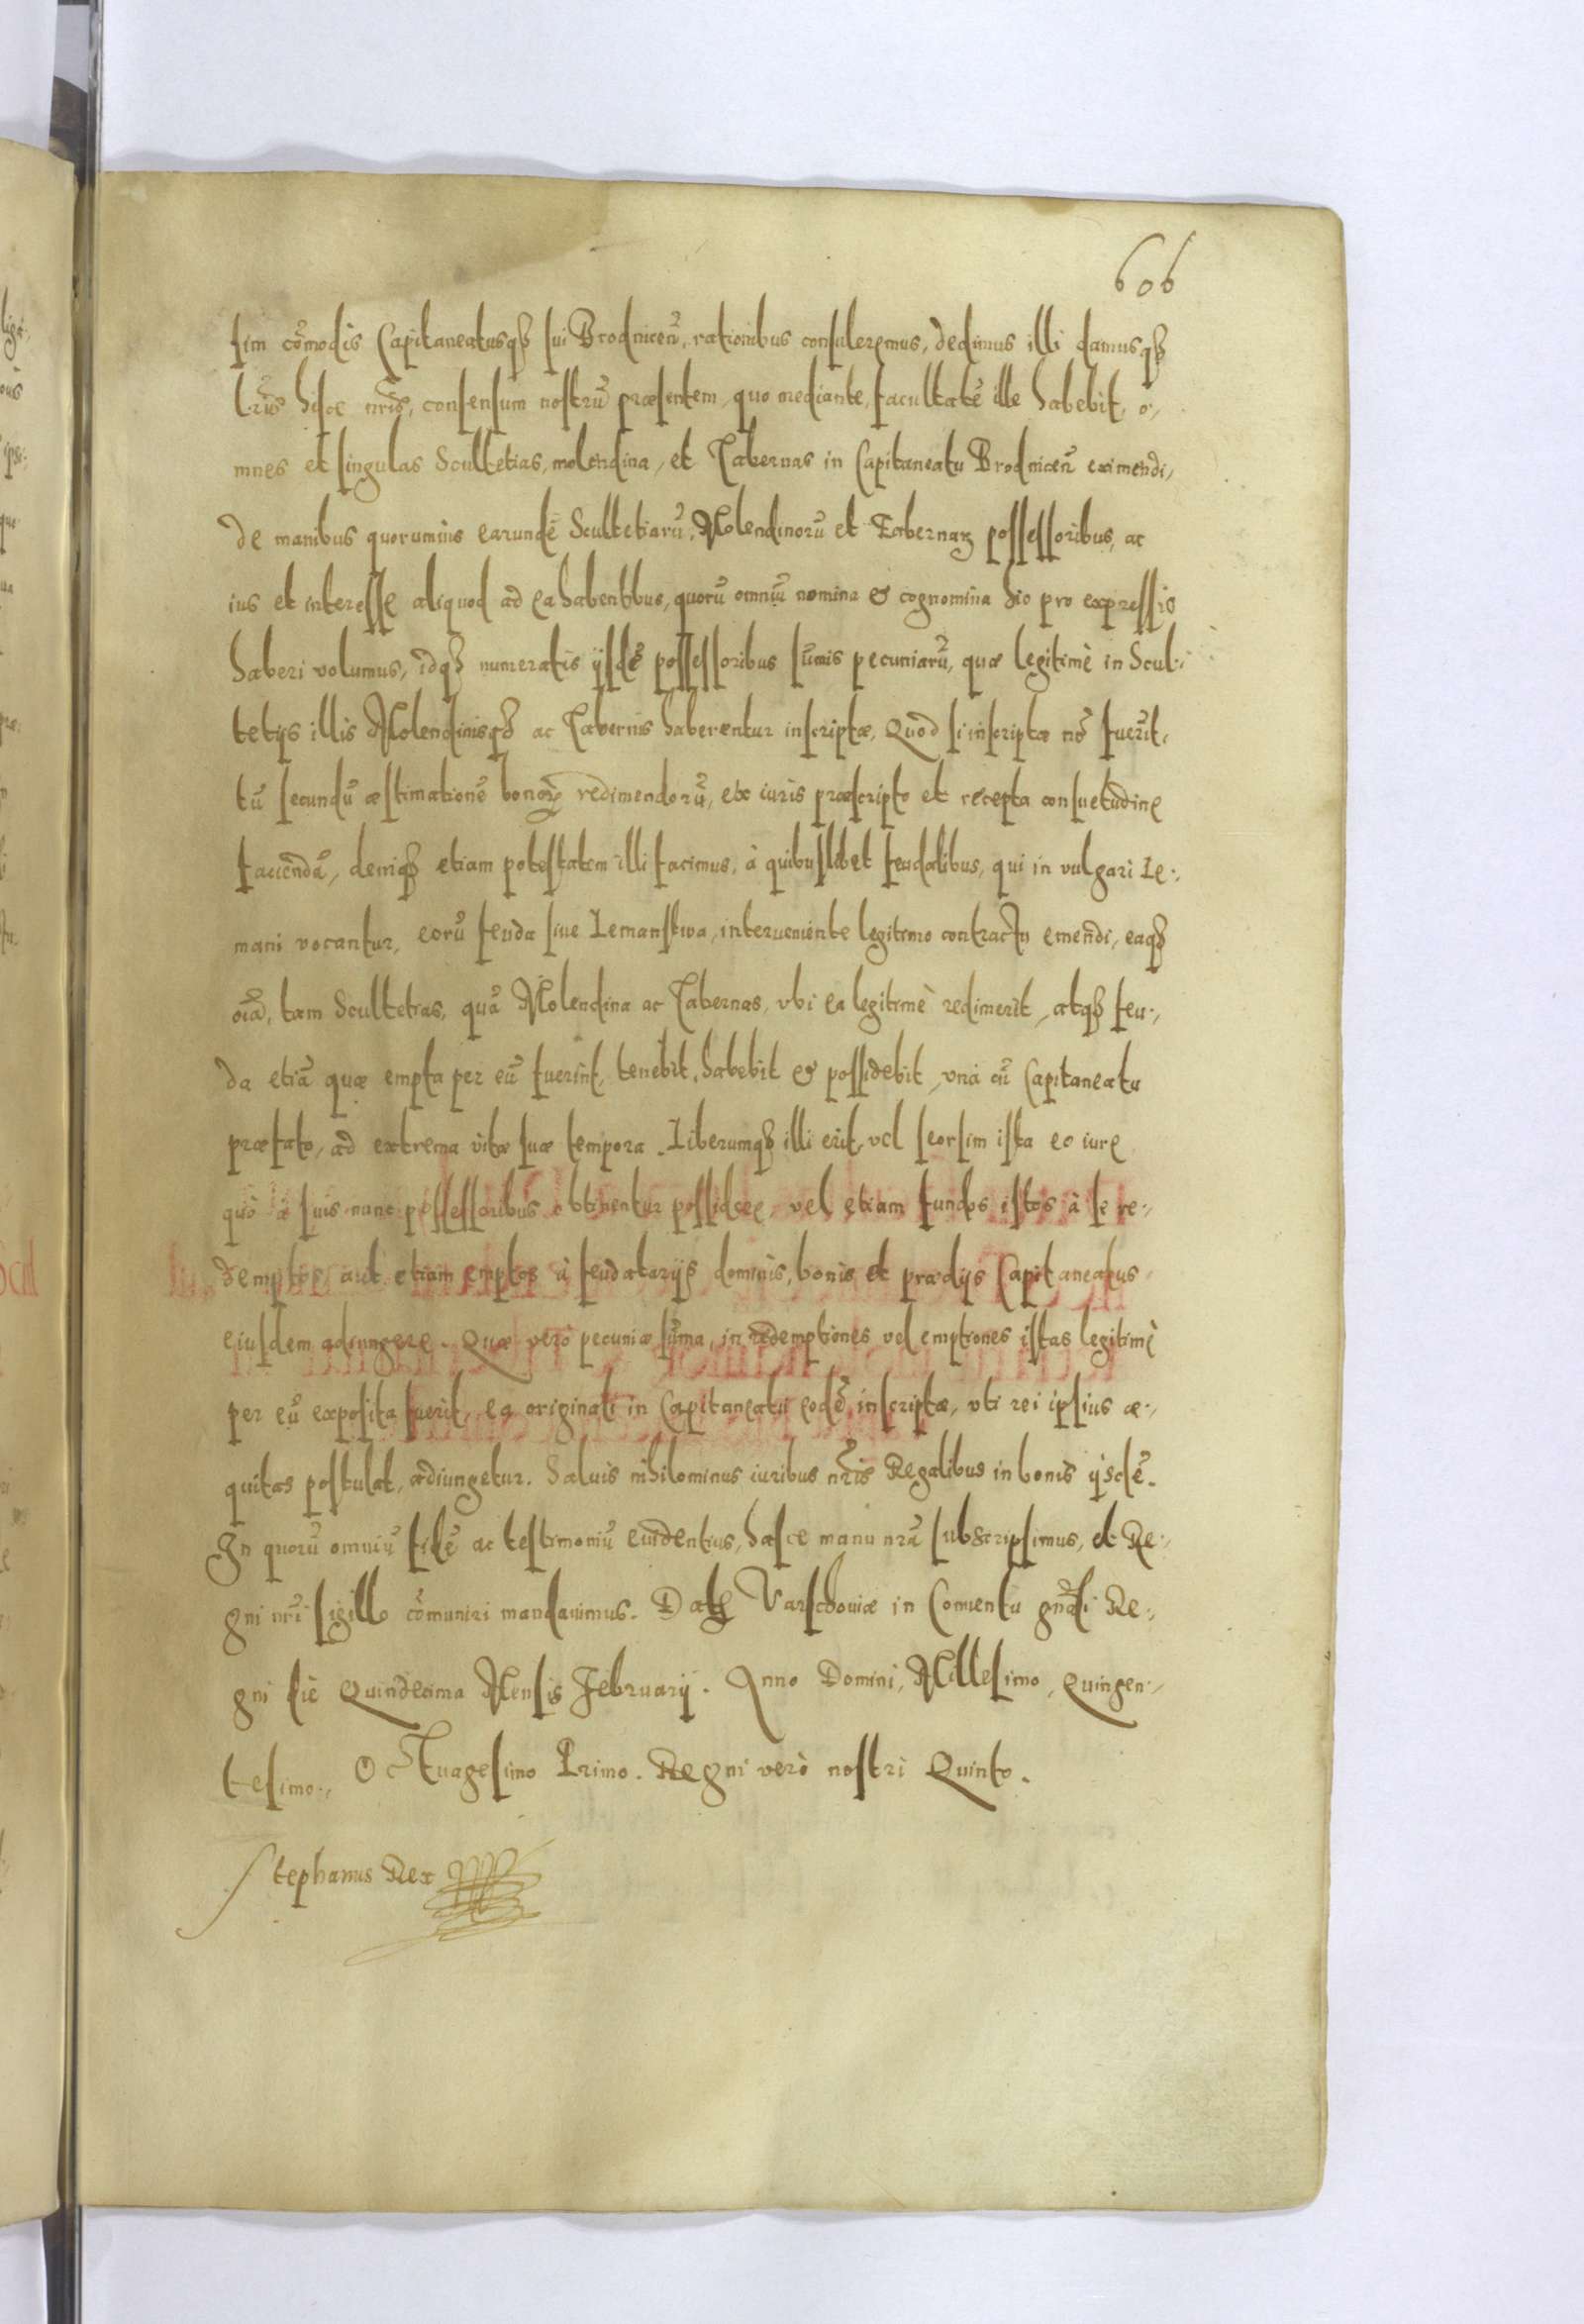 606
sim cōmodis Capitaneatusqȝ sui Brodniceñ, rationibus consuleremus, dedimus illi damusqȝ
lris hisce nris, consensum nostrū præsentem, quo mediante, facultatē ille habebit, o-,
mnes et singulas Scultetias, molendina, et Tabernas in Capitaneatu Brodniceñ eximendi,
de manibus quorumuis earundē Scultetiarū, Molendinorū et Tabernaꝝ possessoribus, ac
ius et interesse aliquod ad ea habentibus, quorū omniū nomina & cognomina hic pro expressis
haberi volumus, idqȝ numeratis ijsdē possessoribus sūmis pecuniarū, quæ legitimè in Scul-,
tetijs illis Molendinisqȝ ac Tabernis haberentur inscriptæ, Quod si inscriptæ nō fuerīt,
tū secundū æstimationē bonoꝝ redimendorū, ex iuris præscripto et recepta consuetudine
faciendā, deniqȝ etiam potestatem illi facimus, à quibuslibet feudalibus, qui in vulgari Le-,
mani vocantur, eorū feuda siue Lemanskwa, interueniente legitimo contractu emendi, eaqȝ
oīa, tam Scultetias, quā Molendina ac Tabernas, vbi ea legitimè redimerit, atqȝ feu-,
da etiā quæ empta per eū fuerint, tenebit, habebit & possidebit, vnà cū Capitaneatu
præfato, ad extrema vitæ suæ tempora. Liberumqȝ illi erit, vel seorsim ista eo iure
quò à suis nunc possessoribus obtinentur possidere, vel etiam fundos istos à se re-,
demptos, aut etiam emptos à feudatarijs dominis, bonis et prædijs Capitaneatus
eiusdem adiungere. Quæ verò pecuniæ sūma, in redemptiones vel emptiones istas legitimè
per eū exposita fuerit, ea originali in Capitaneatu eodē inscriptæ, vti rei ipsius æ-,
quitas postulat, adiungetur. Saluis nihilominus iuribus nris Regalibus in bonis ijsdē.
In quorū omniū fidē ac testimoniū euidentius, hasce manu nrā subscripsimus, et Re-,
gni nri sigillo cōmuniri mandauimus. Datꝭ Varschouiæ in Conuentu gnāli Re-,
gni die Quindecima Mensis Februarij. Anno Domini, Millesimo, Quingen-,
tesimo-, Octuagesimo Primo. Regni verò nostri Quinto.
Stephanus Rex